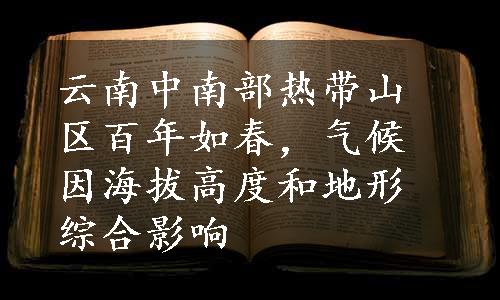 云南中南部热带山
区百年如春，气候
因海拔高度和地形
综合影响